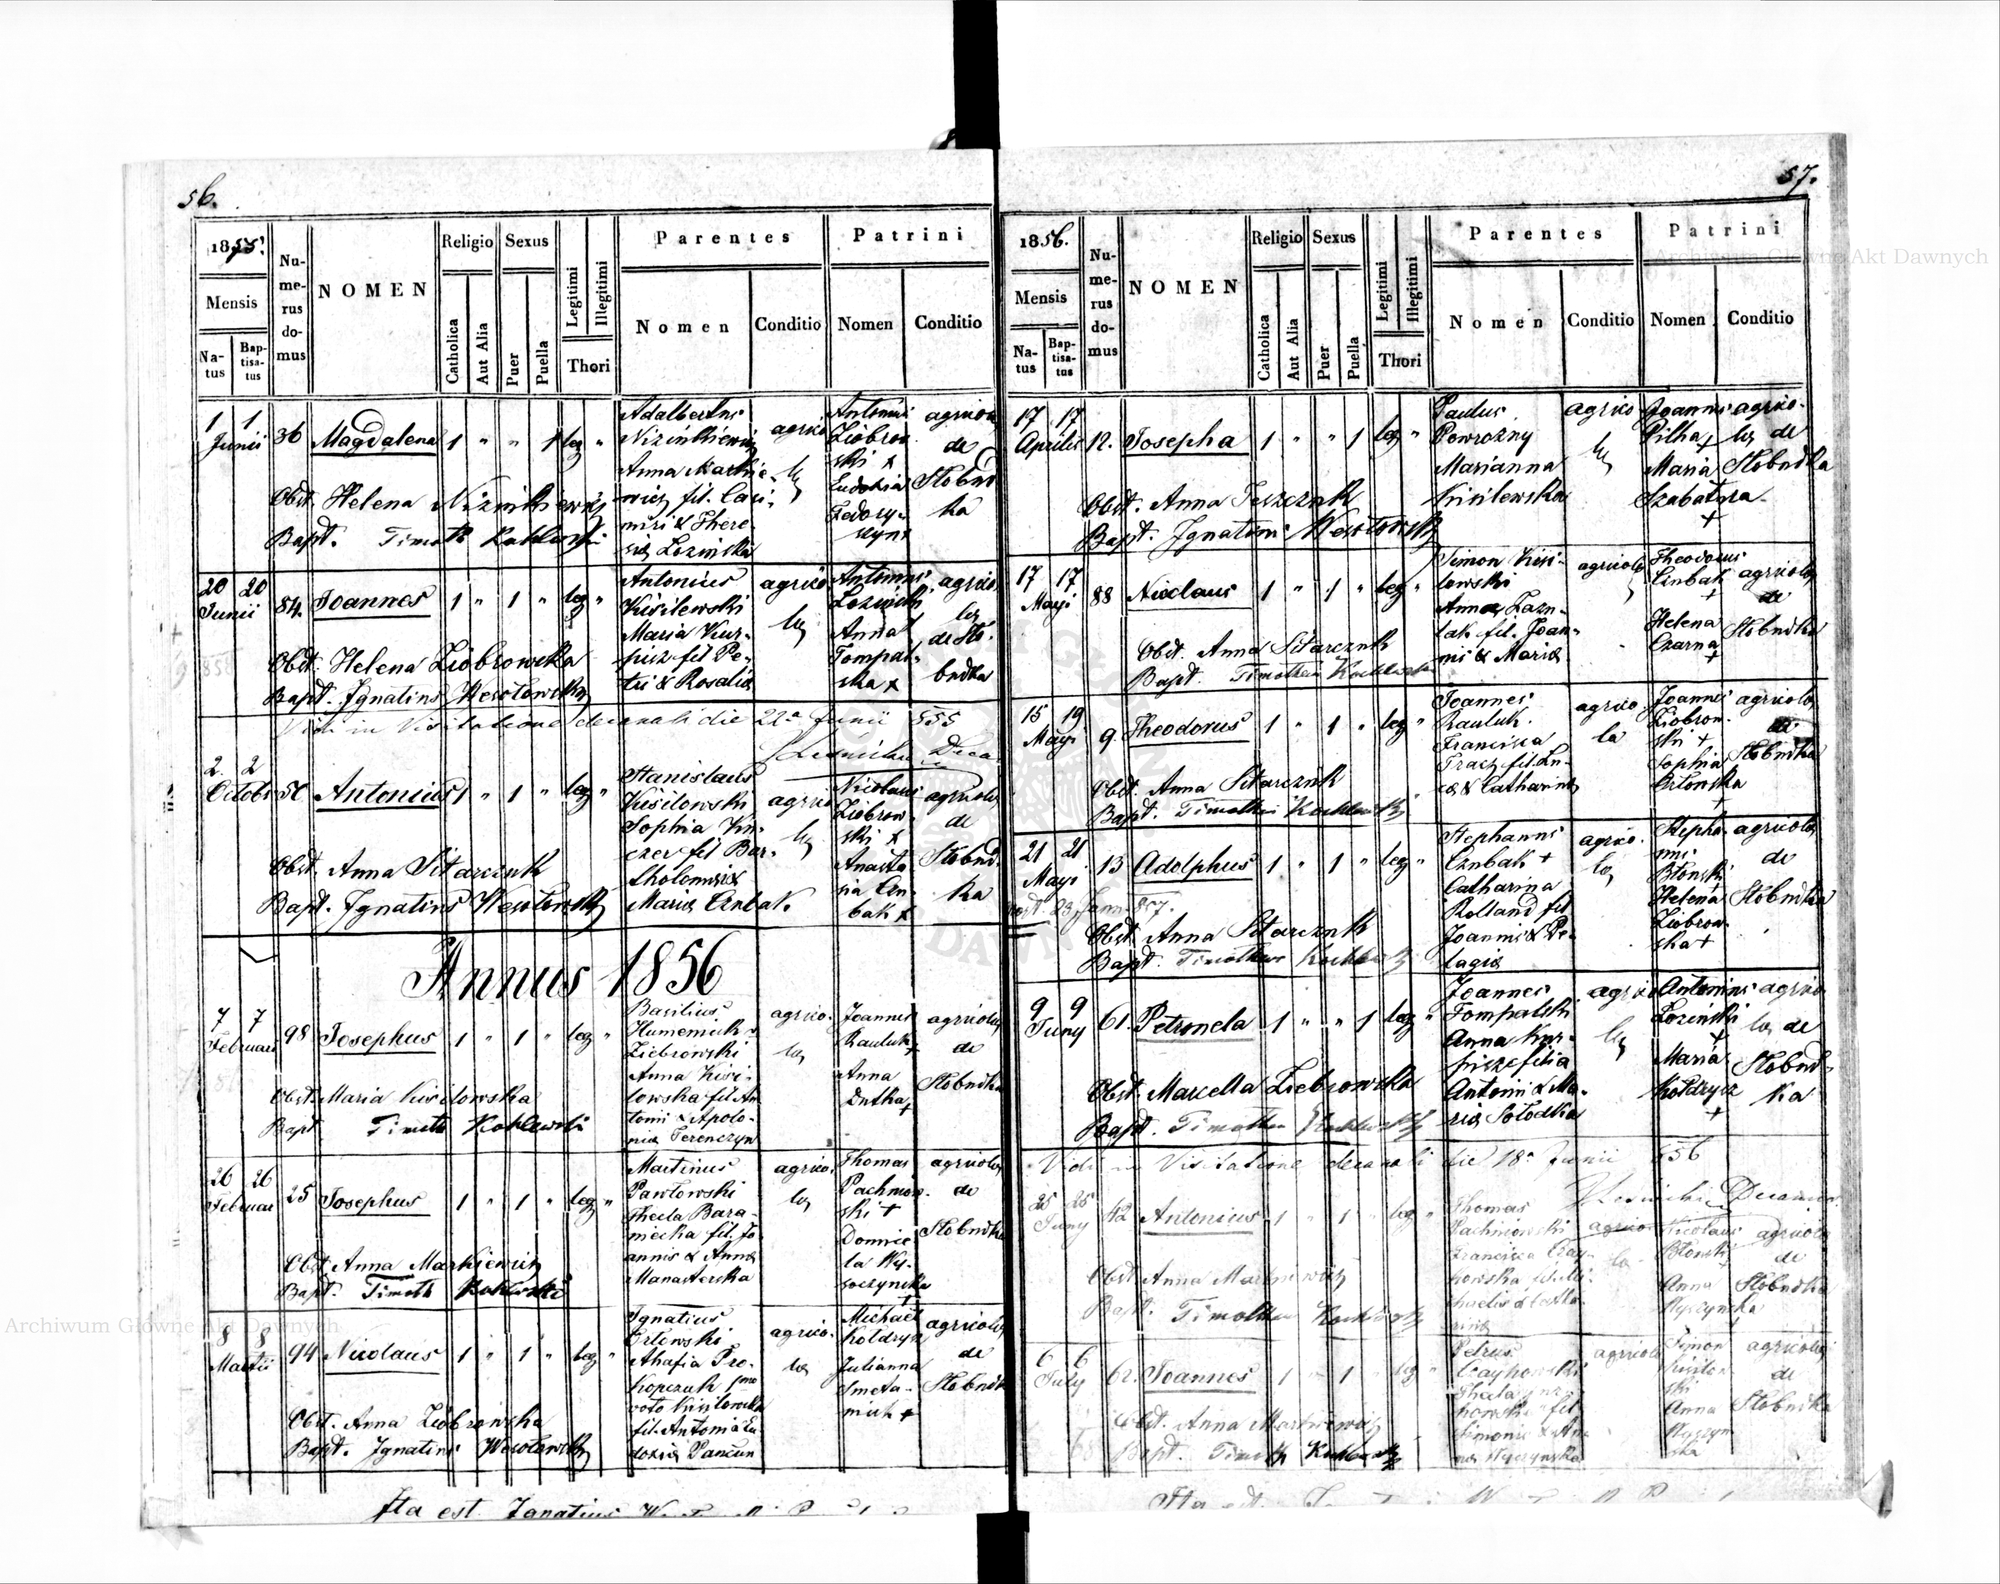 56.
1855.
Mensis
Natus
Baptisatus
Numerus domus
NOMEN
Religio
Catholica
Aut Alia
Sexus
Puer
Puella
Legitimi
Illegitimi
Thori
Parentes
Nomen
Conditio
Patrini
Nomen
Conditio
1 1
Junii
36
Magdalena
1 " " 1 leg "
Adalbertus
Anna Markie-
wicz fil. Casi-
miri & There-
sia Lozinska
agrico-
la
Antonius
Ziobrow-
ski x
Eudokia
Fedory-
szyn
agricola
de
Słobud
ka
Obst. Helena Nizinkiewicz
Bapt. Timoth Kohlewski
20 20
Junii
84
Joannes
1 " 1 " leg "
Antonius
Kisilewski
Maria Kur-
pisz fil Pe-
tri & Rosalia
agrico-
la
Antonius
Lozinski
Anna
Tompal-
ska x
agrico-
la
de Sło-
budka
Obst. Helena Ziobrowska
Bapt. Ignatius Wesołowski
Vidi in Visitatione decanali die 22a Junii 855
2 2
Octobr
50
Antonius
1 " 1 " leg "
Stanislaus
Kisilowski
Sophia Ku-
czer fil Bar-
tholomei &
Maria Czubak.
agrico
la
Nicolaus
Ziobrow-
ski x
Anasta
sia Czu-
bak x
agricola
de
Słobud-
ka
Obst. Anna Sitarczuk
Bapt. Ignatius Wesołowski
Annus 1856
7 7
Februari
98
Josephus
1 " 1 " leg "
Basilius
Ziebrowski
Anna Kisi-
lowska fil An
tonii & Apolo-
nia Ferenczyn
agrico-
la
Joannes
Rauluk
Anna
Dutka
agricola
de
Słobudka
Obst. Maria Kisilowska
Bapt Timoth Kohlewski
26 26
Februar
25
Josephus
1 " 1 " leg "
Martinus
Pawłowski
Thecla Bara-
niecka fil. Jo
annis & Anna
Manasterska
agrico-
la
Thomas
Pachniow-
ski +
Domice
la Wy-
soczynska
agricola
de
Słobudka
Obst. Anna Markiewicz
Bapt. Timoth Kohlewski
8 8
Martii
94
Nicolaus
1 " 1 " leg "
Ignatius
Orlewski
Ahafia Pro-
kopczuk 1mo
voto Kisilowska
fil. Antoni & Eu
doxia Pancun
agrico-
la
Michael
Kołdrycz
Julianna
Smeta-
niuk +
agricola
de
Słobudk
Obst. Anna Ziobrowska
Bapt. Ignatius Wesołowski
Ita est Ignatius
57.
1856.
Mensis
Natus
Baptisatus
Numerus domus
NOMEN
Religio
Catholica
Aut Alia
Sexus
Puer
Puella
Legitimi
Illegitimi
Thori
Parentes
Nomen
Conditio
Patrini
Nomen
Conditio
17 17
Aprilis
12.
Josepha
1 " " 1 leg "
Paulus
Powrozny
Marianna
Kisilewska
agrico
la
Joannes
Pilha +
Maria
Szabatura
+
agrico-
la de
Słobudka
Obst. Anna Juszczuk
Bapt. Ignatius Wesołowski
17 17
Mayi
88
Nicolaus
1 " 1 " leg "
Simon Kisi-
lowski
Anna Łazu-
tak fil. Joan-
nis & Maria
agricola
Theodorus
Czubak
+
Helena
Czarna
+
agricola
de
Słobudka
Obst. Anna Sitarczuk
Bapt. Timotheus Kochlewski
15 19
Mayi
9
Theodorus
1 " 1 " leg "
Joannes
Rauluk.
Francisca
Tracz fil. Lu-
ca & Catharina
agrico
la
Joannes
Ziobrow-
ski +
Sophia
Orłowska
+
agricola
de
Słobudka
Obst. Anna Sitarczuk
Bapt. Timotheus Kochlewski
21 21
Mayi
13
Adolphus
1 " 1 " leg "
Stephanus
Czubak +
Catharina
Rolland fil
Joannis & Pe-
lagia
agrico-
la
Stepha-
nus
Błonski
Helena
Ziobrow-
ska +
agricola
de
Słobudka
Obst. Anna Sitarczuk
Bapt. Timotheus Kochlewski
9 9
Juny
61.
Petronela
1 " " 1 leg "
Joannes
Tompalski
Anna Kur-
pisz filia
Antonii & Ma-
ria Sołodka
agrico
la
Antonius
Lozinski
+
Maria
Kołdrycz
+
agrico
la de
Słobud-
ka
Obst. Marcella Ziebrowska
Bapt. Timotheus Kochlewski
Vidi in Visitatione decanali die 18a Junii 856
25 25
Juny
42
Antonius
1 " 1 " leg "
Thomas
Pachniowski
Francisca Czay-
kowska fil. Mi-
chaelis & Catha-
rina
agrico-
la
Nicolaus
Błonski
+
Anna
agricola
de
Słobudka
Obst. Anna Markiewicz
Bapt. Timotheus Kochlewski
6 6
July
62.
Joannes
1 " 1 " leg "
Petrus
Czaykowski
Thecla
Simonis & An-
na
agricola
Simon
Kisilow-
ski
Anna
agricola
de
Słobudka
Obst. Anna Markiewicz
Bapt. Timoth Kochlewski
Ita est
Archiwum Główne Akt Dawnych
Archiwum Główne Akt Dawnych